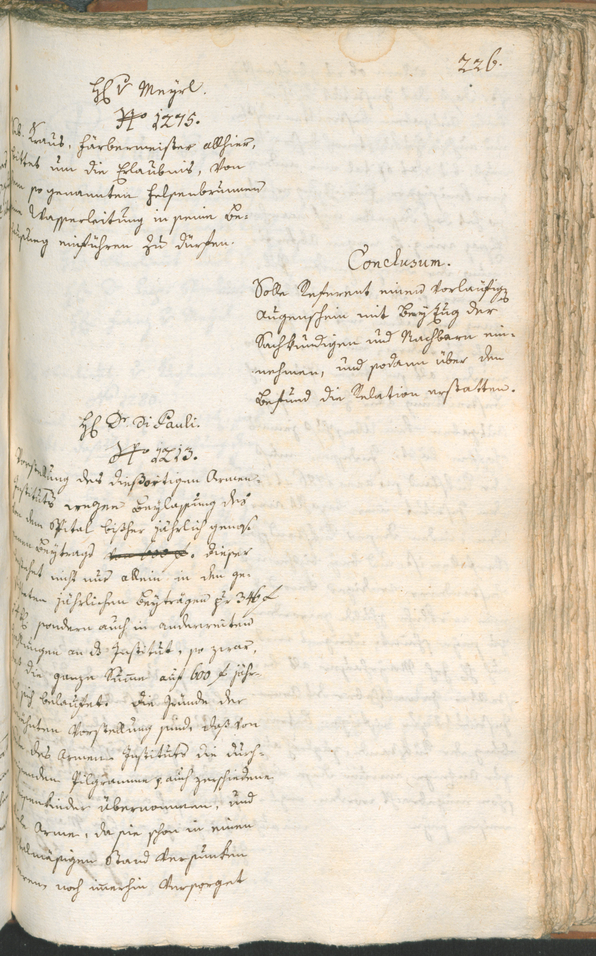 226.
H v Meyrl.
No 1275.
Kraus, Färbermeister allhier,
bittet um die Erlaubnis, von
so genannten Felsenbrunnen
Wasserleitung in seine Be¬
einführen zu dürfen.
Conclusum.
Solle Referent einen vorläufig
Augenschein mit Beyzug der
Sachkündigen und Nachbarn ein¬
nehmen, und sodann über den
Befund die Relation erstatten.
H Dr. Di Pauli.
No 1213.
Vorstellung des diesortigen Armen¬
Instituts wegen Beylassung des
dem Spital bisher jährlich
Beytrags dieser
nicht nur allein in den ge¬
jährlichen Beyträgen pr 346 f
sondern auch in anderweiten
an das Institut, so zwar,
die ganze Summe auf 600 f jähr¬
lich belaufet. Die Gründe der
Vorstellung sind, daß von
des Armen Instituts die durch¬
Pilgramme, auch verschiedene
übernommen, und
Arme, da sie schon in einen
Stand versunken
noch immerhin versorget